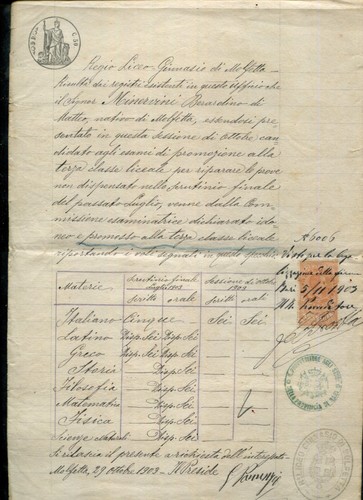 Regio Liceo Ginnasio di Molfetta
Risulta dai registri esistenti in questo ufficio che
il signor Minervini Berardino di
Matteo, nativo di Molfetta, essendosi pre
sentato in questa sessione di ottobre can
didato agli esami di promozione alla
terza classe liceale per riparare le prove
non dispensato nello scrutinio finale
del passato luglio, venne dalla Com
missione esaminatrice dichiarato ido
neo e promosso alla terza classe liceale
riportando i voti segnati in questo
Materie
scrutinio finale
scritto orale
Sessione di ottobre
1903
scritto orale
Italiano Cinque Sei Sei
Latino Disp. Sei Disp. Sei
Greco Disp. Sei Disp. Sei
Storia Disp. Sei
Filosofia Disp. Sei
Matematica Disp. Sei
Fisica Disp. Sei
Scienze naturali Disp. Sei
Si rilascia il presente a richiesta dell'interessato
Molfetta, 29 ottobre 1903. Il Preside
Visto per la
della firma
Bari 5/11 1903